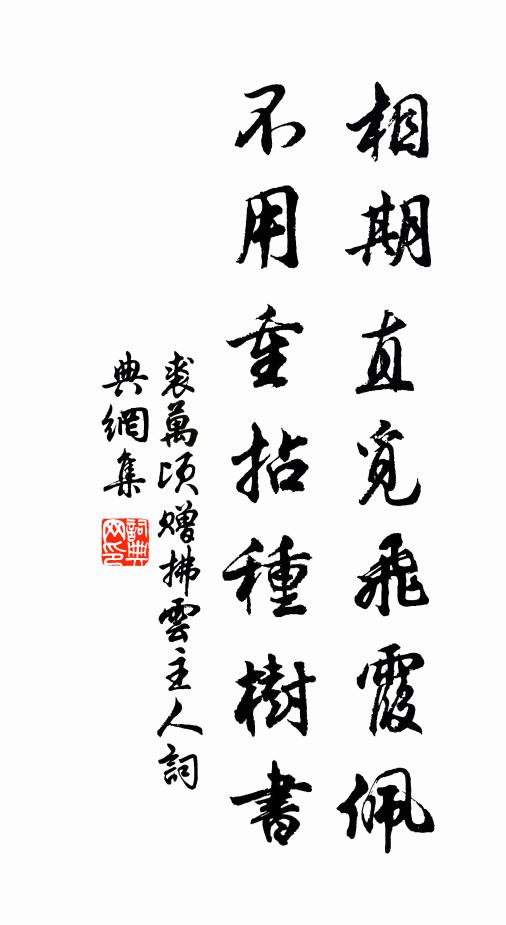 相期直覓飛霞佩
不用重拈種樹書
裘萬頃贈拂雲主人詞
典網集
詞典網印